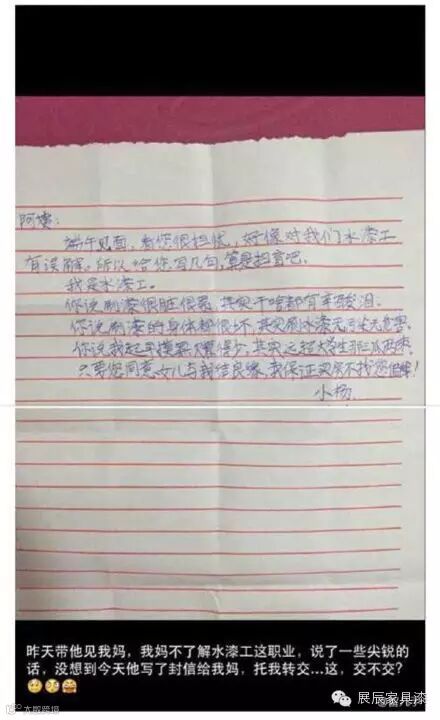 阿姨：
端午见面，看您很担忧，好像对我们水漆工
有误解。所以给您写几句，算是招官吧。
我是水漆工。
你说刷漆很脏很累，其实干啥都有辛酸泪。
你说刷漆的身体都很坏，其实刷水漆无污染无危害。
你说我起早摸黑不算得少，其实远超大学生那三瓜两枣。
只要您同意女儿与我结良缘，我保证买房不找您借钱！
小杨
昨天带他见我妈，我妈不了解水漆工这职业，说了一些尖锐的
话，没想到今天他写了封信给我妈，托我转交...这，交不交？
展辰家具漆
大数跨境